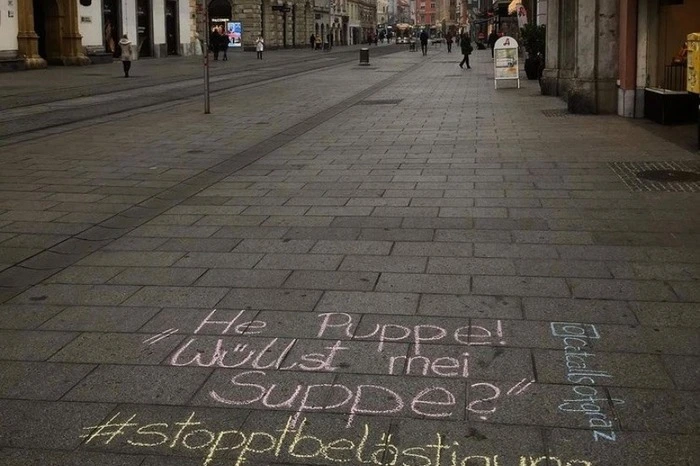 He Puppe!
"Wüllst mei
Suppe?"
#stopptbelästigung
@catcallsofgraz